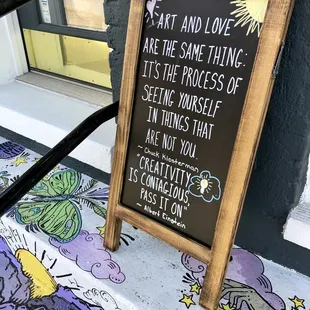 ART AND LOVE
ARE THE SAME THING:
IT'S THE PROCESS OF
SEEING YOURSELF
IN THINGS THAT
ARE NOT YOU.
~ Chuck Klosterman
"CREATIVITY
IS CONTAGIOUS,
PASS IT ON"
~ Albert Einstein